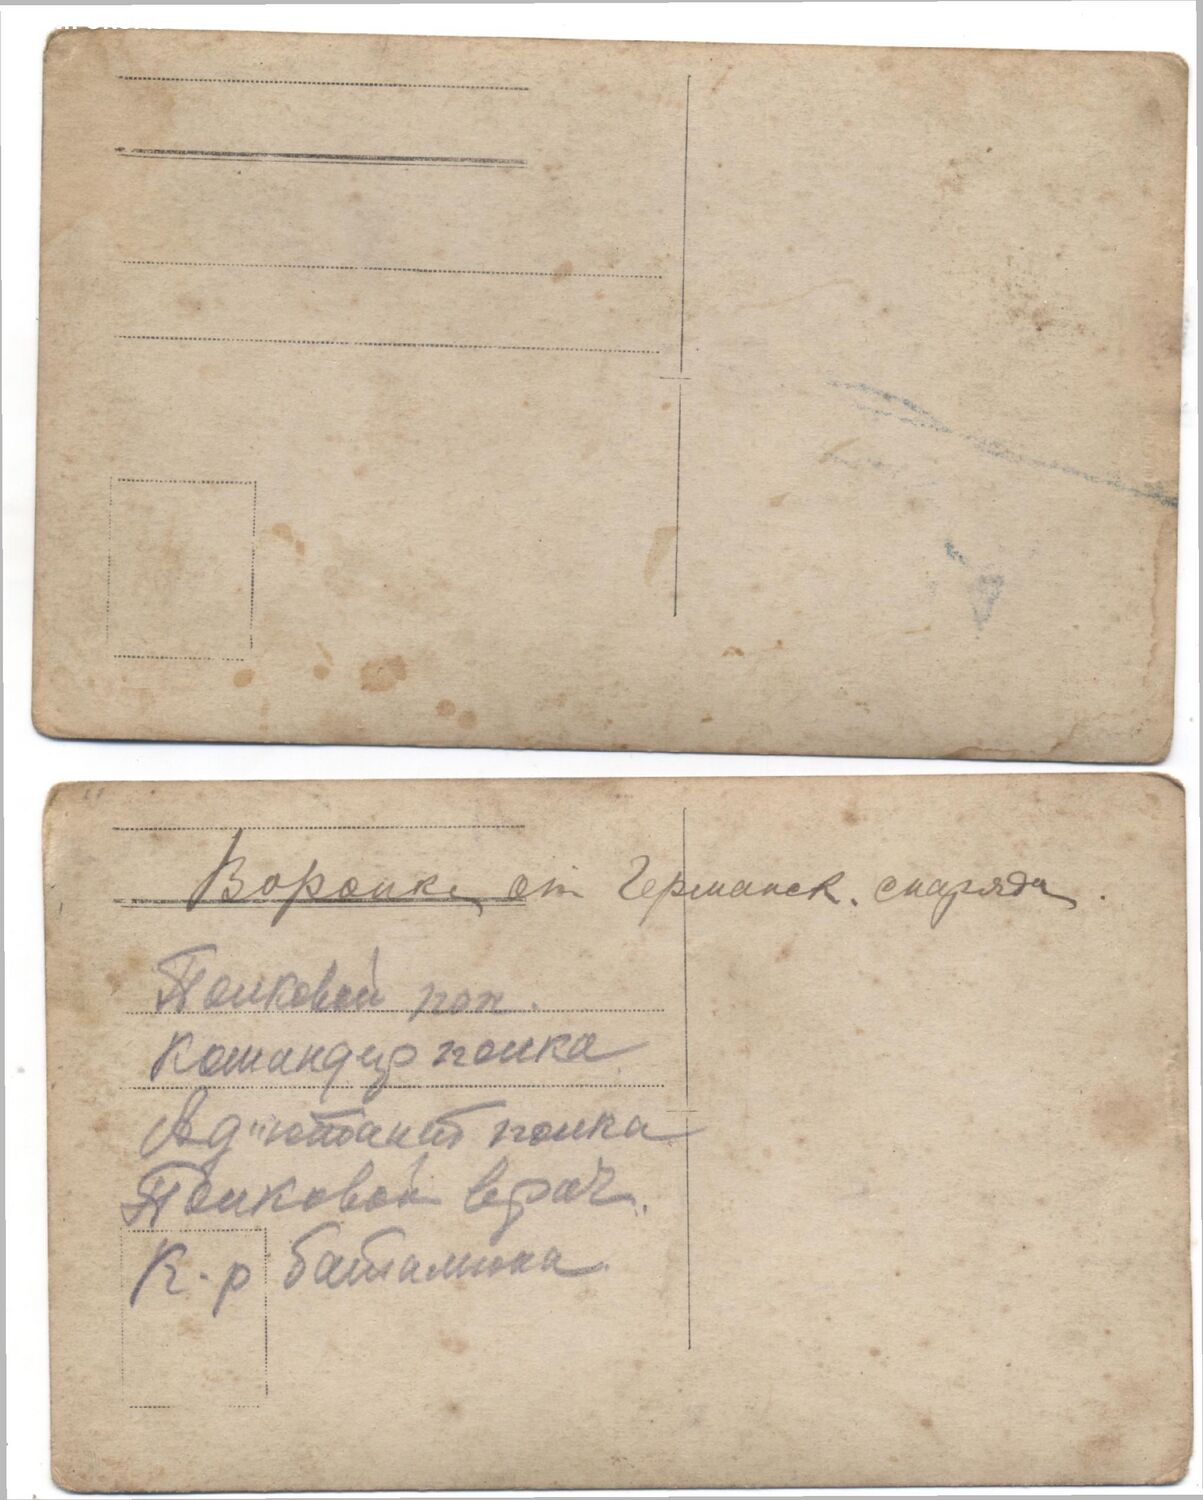 Воронка от Германск. снаряда.
Полковой поп.
Командир полка
Адъютант полка
Полковой врач.
К-р баталиона